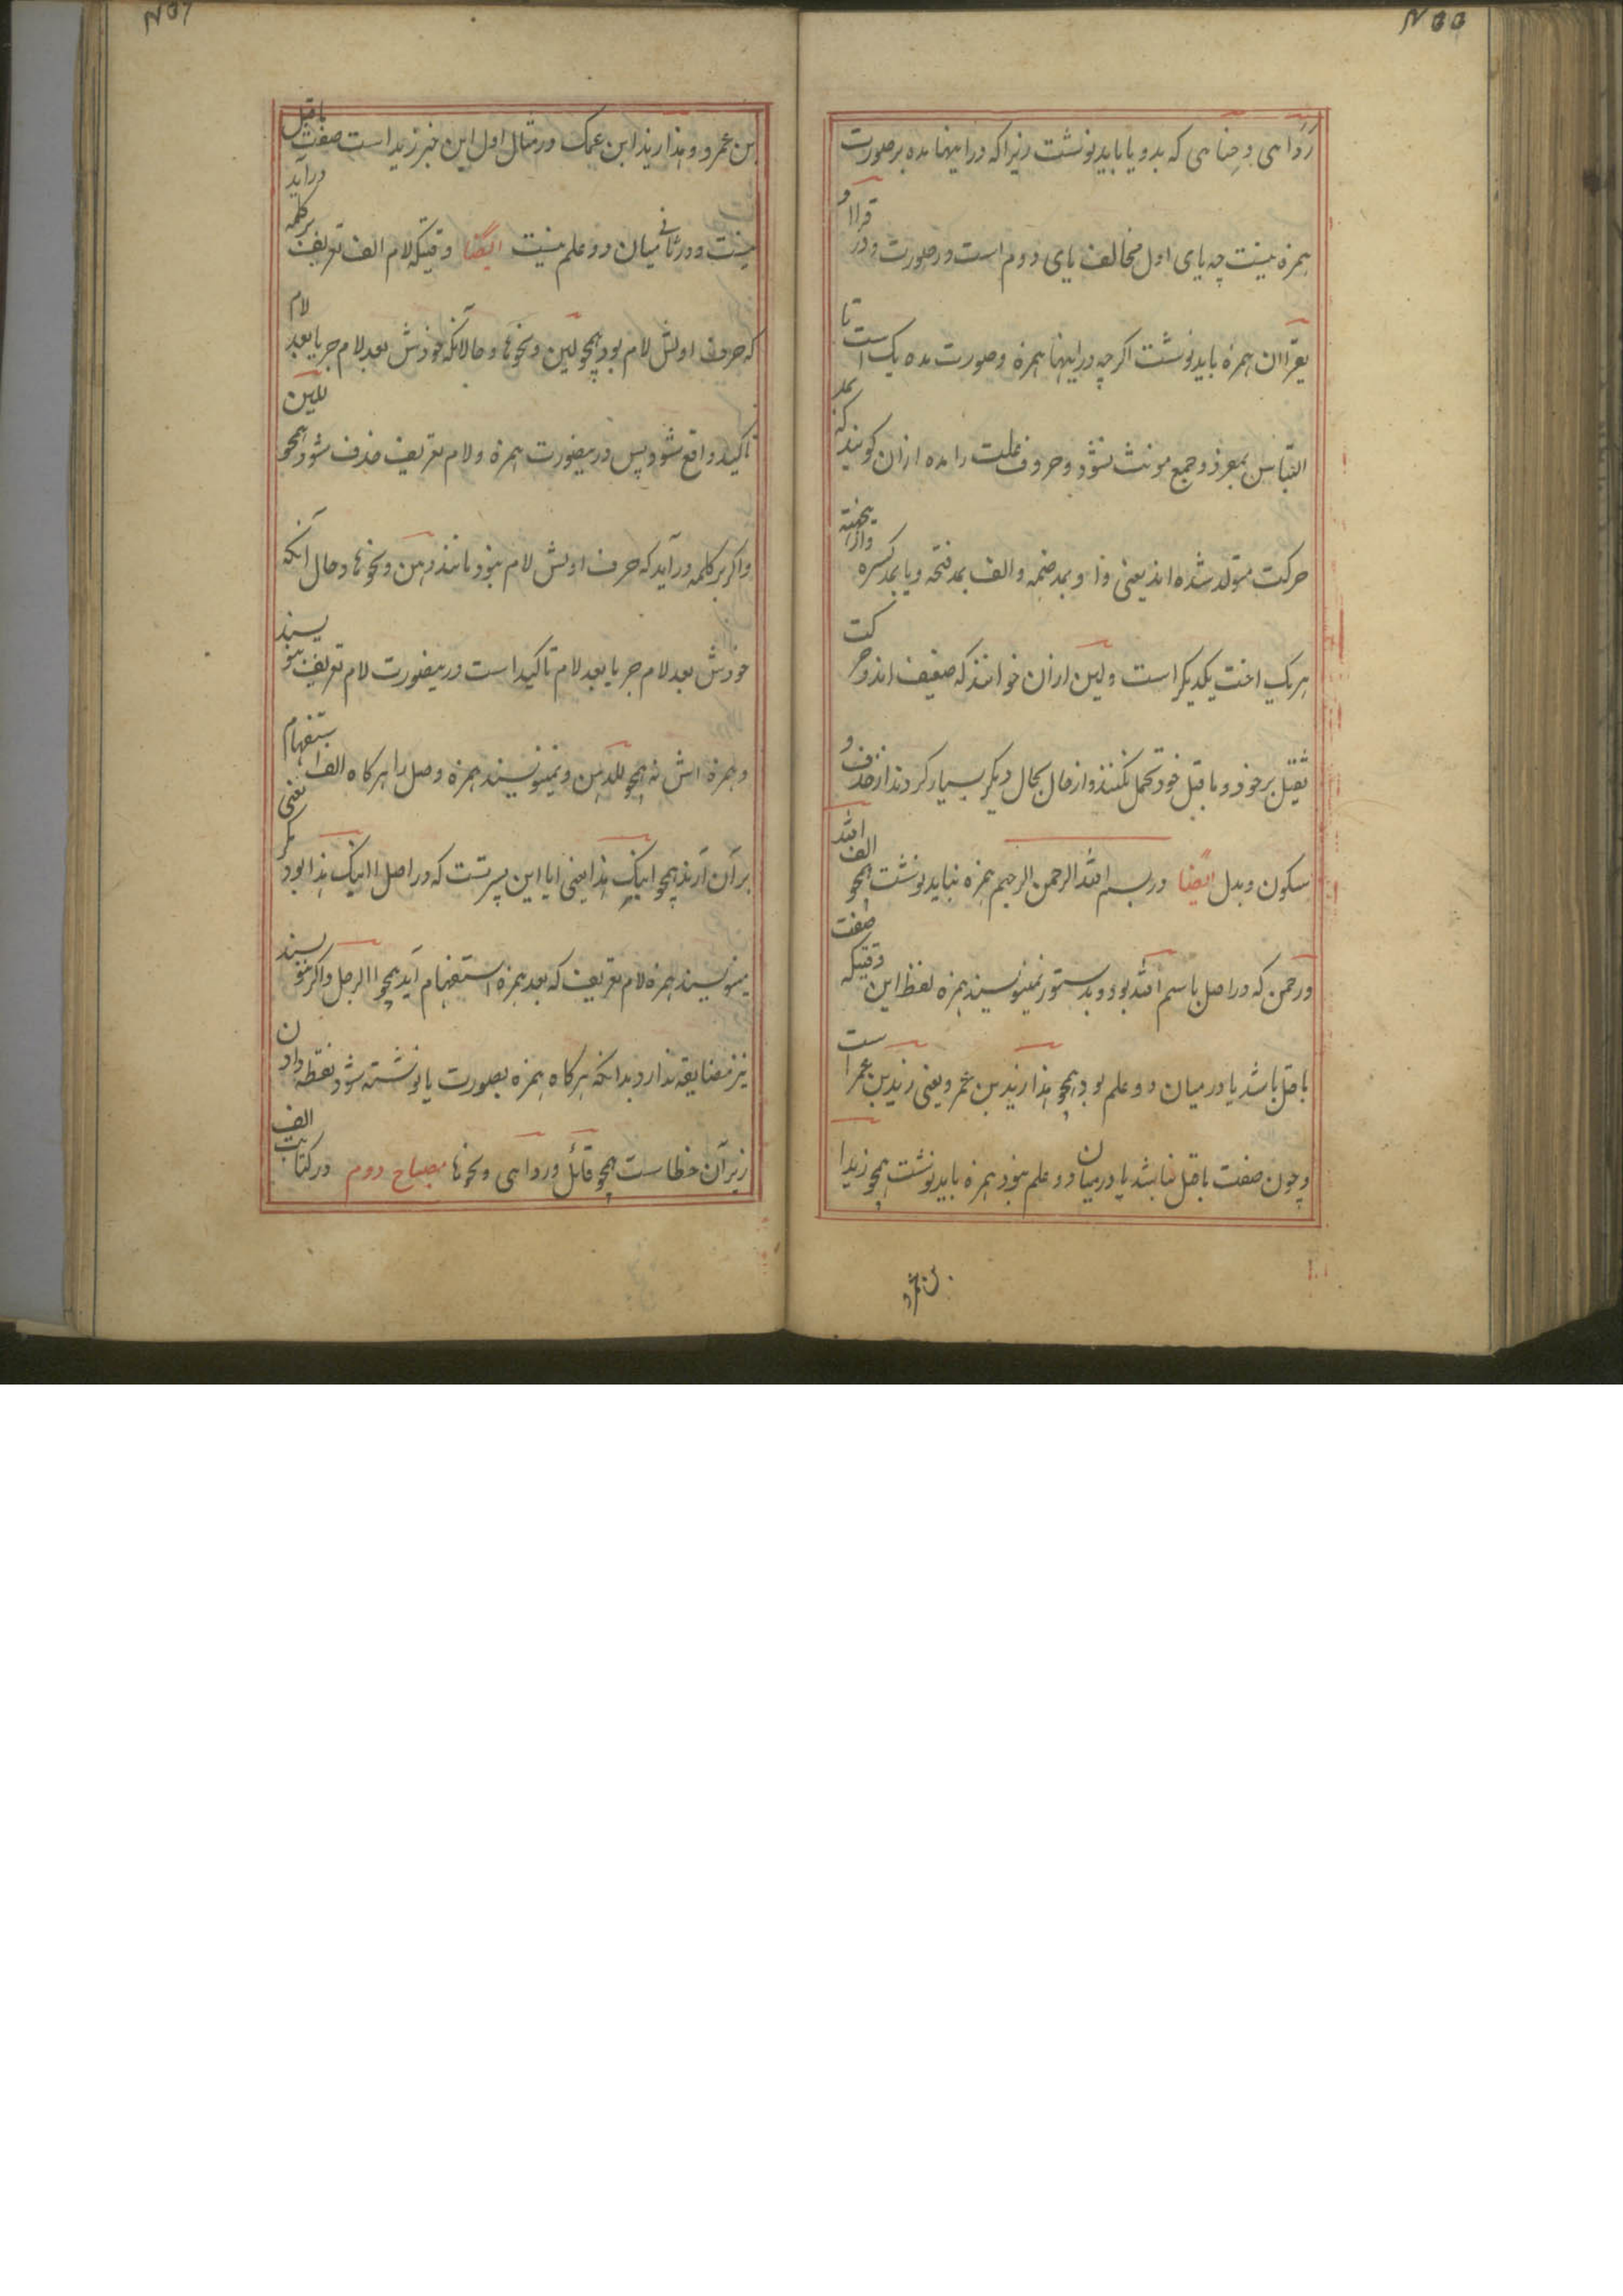 ردای و حنای که بدو یا باید نوشت زیرا که دراینها مده بر صورت
همزه نیست چه یای اول مخالف یای دوم است و در صورت و در قراا و
یقراان همزه باید نوشت اگرچه دراینها همزه و صورت مده یک است تا
التباس بمفرد و جمع مونث نشود و حروف علت را مده ازان گویند که بمد
حرکت متولد شده اند یعنی واو بمد ضمه و الف بمد فتحه و یا بمد کسره
هر یک اخت یکدیگر است و لین ازان خوانند که ضعیف اند و حرکت
ثقیل بر خود و ماقبل خود تحمل نکنند و از حال بحال دیگر بسیار گردند از حذف و
سکون و بدل ایضا در بسم الله الرحمن الرحیم همزه نباید نوشت همچو الف الله
و رحمن که در اصل باسم الله بود و بدستور نمینویسند همزه لفظ ابن وقتیکه صفت
ماقبل باشد یا درمیان دو علم بود همچو هذا زید بن عمرو یعنی زید بن عمر است
و چون صفت ماقبل نباشد یا درمیان دو علم نبود همزه باید نوشت همچو زید ا
بن عمرو و هذا زید ابن عمک در مثال اول ابن خبر زید است صفت ماقبل
نیست و در ثانی میان دو علم نیست ایضا وقتیکه لام الف تعریف برکلمه درآید
که حرف اولش لام بود همچو لبن و نحوها و حالآنکه خودش بعد لام جر یا بعد لام
تاکید واقع شود پس درینصورت همزه و لام تعریف حذف شود همچو للبن
و اگر بر کلمه درآید که حرف اولش لام نبود مانند دهن و نحوها و حال آنکه
خودش بعد لام جر یا بعد لام تاکید است درینصورت لام تعریف بنویسند
و همزه اش نه همچو للدهن و نمینویسند همزه وصل را هرگاه الف استفهام
بر آن آرند همچو ابنک هذا یعنی ایا این پسر تست که در اصل اابنک هذا بود
مینویسند همزه لام تعریف که بعد همزه استفهام آید همچو االرجل و اگر ننویسند
نیز مضایقه ندارد بدانکه هرگاه همزه بصورت یا نوشته شود نقطه دادن
زیر آن خطاست همچو قائل و ردای و نحوها مصباح دوم در کتابت الف